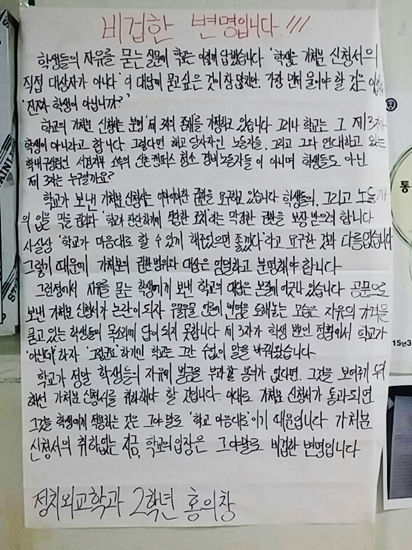 비겁한 변명입니다!!!
학생들의 자유를 묻는 질문에 학교는 이렇게 답했습니다 "학생은 가처분 신청서의
직접 대상자가 아니다" 이 대답에 묻고 싶은 것이 참 많지만, 가장 먼저 물어야 할 것은
"진짜로 학생이 아닙니까?"
학교의 가처분 신청서는 분명 제3의 존재를 가정하고 있습니다 그러나 학교는 그 제3자가
학생이 아니라고 합니다 그렇다면 해고 당사자인 노동자들, 그리고 그와 연대하고 있는
학내 구성원인 서경지부 소속의 신촌캠퍼스 청소 경비 노동자들이 아니며 학생들도 아닌
제3자는 누구일까요?
학교가 보낸 가처분 신청서는 어마어마한 권한을 요구하고 있습니다 학생들의, 그리고 노동자
의 입을 막을 권리와 막대한 권한을 보장 받으려 합니다
사실상 "학교가 마음대로 할 수 있게 해줬으면 좋겠다"라고 요구한 것과 다름없습니다
그렇기 때문에 가처분의 권한 범위와 대상은 엄밀하고 분명해야 합니다
그런 점에서 자유를 묻는 학생에게 보낸 학교의 대답은 본질에 어긋나 있습니다 공문으로
보낸 가처분 신청서가 논란이 되자 변명을 모습은 자유의 가치를
묻고 있는 학생들의 목소리에 답이 되지 못합니다 제3자가 학생 뿐인 정황에서 학교가
"아니다" 하자 학교는 그간 수없이 말을 바꿔왔습니다
학교가 정말 학생들의 자유에 벌금을 부과할 용의가 없다면 그것을 보여주기 위
해선 가처분 신청서를 취하해야 할 것입니다 이대로 가처분 신청서가 통과되면
그것을 학생에게 적용하는 것은 그야말로 "학교 마음대로"이기 때문입니다 가처분
신청서의 취하없는 지금, 학교의 입장은 그야말로 비겁한 변명입니다
정치외교학과 2학년 홍의창
통
15년3